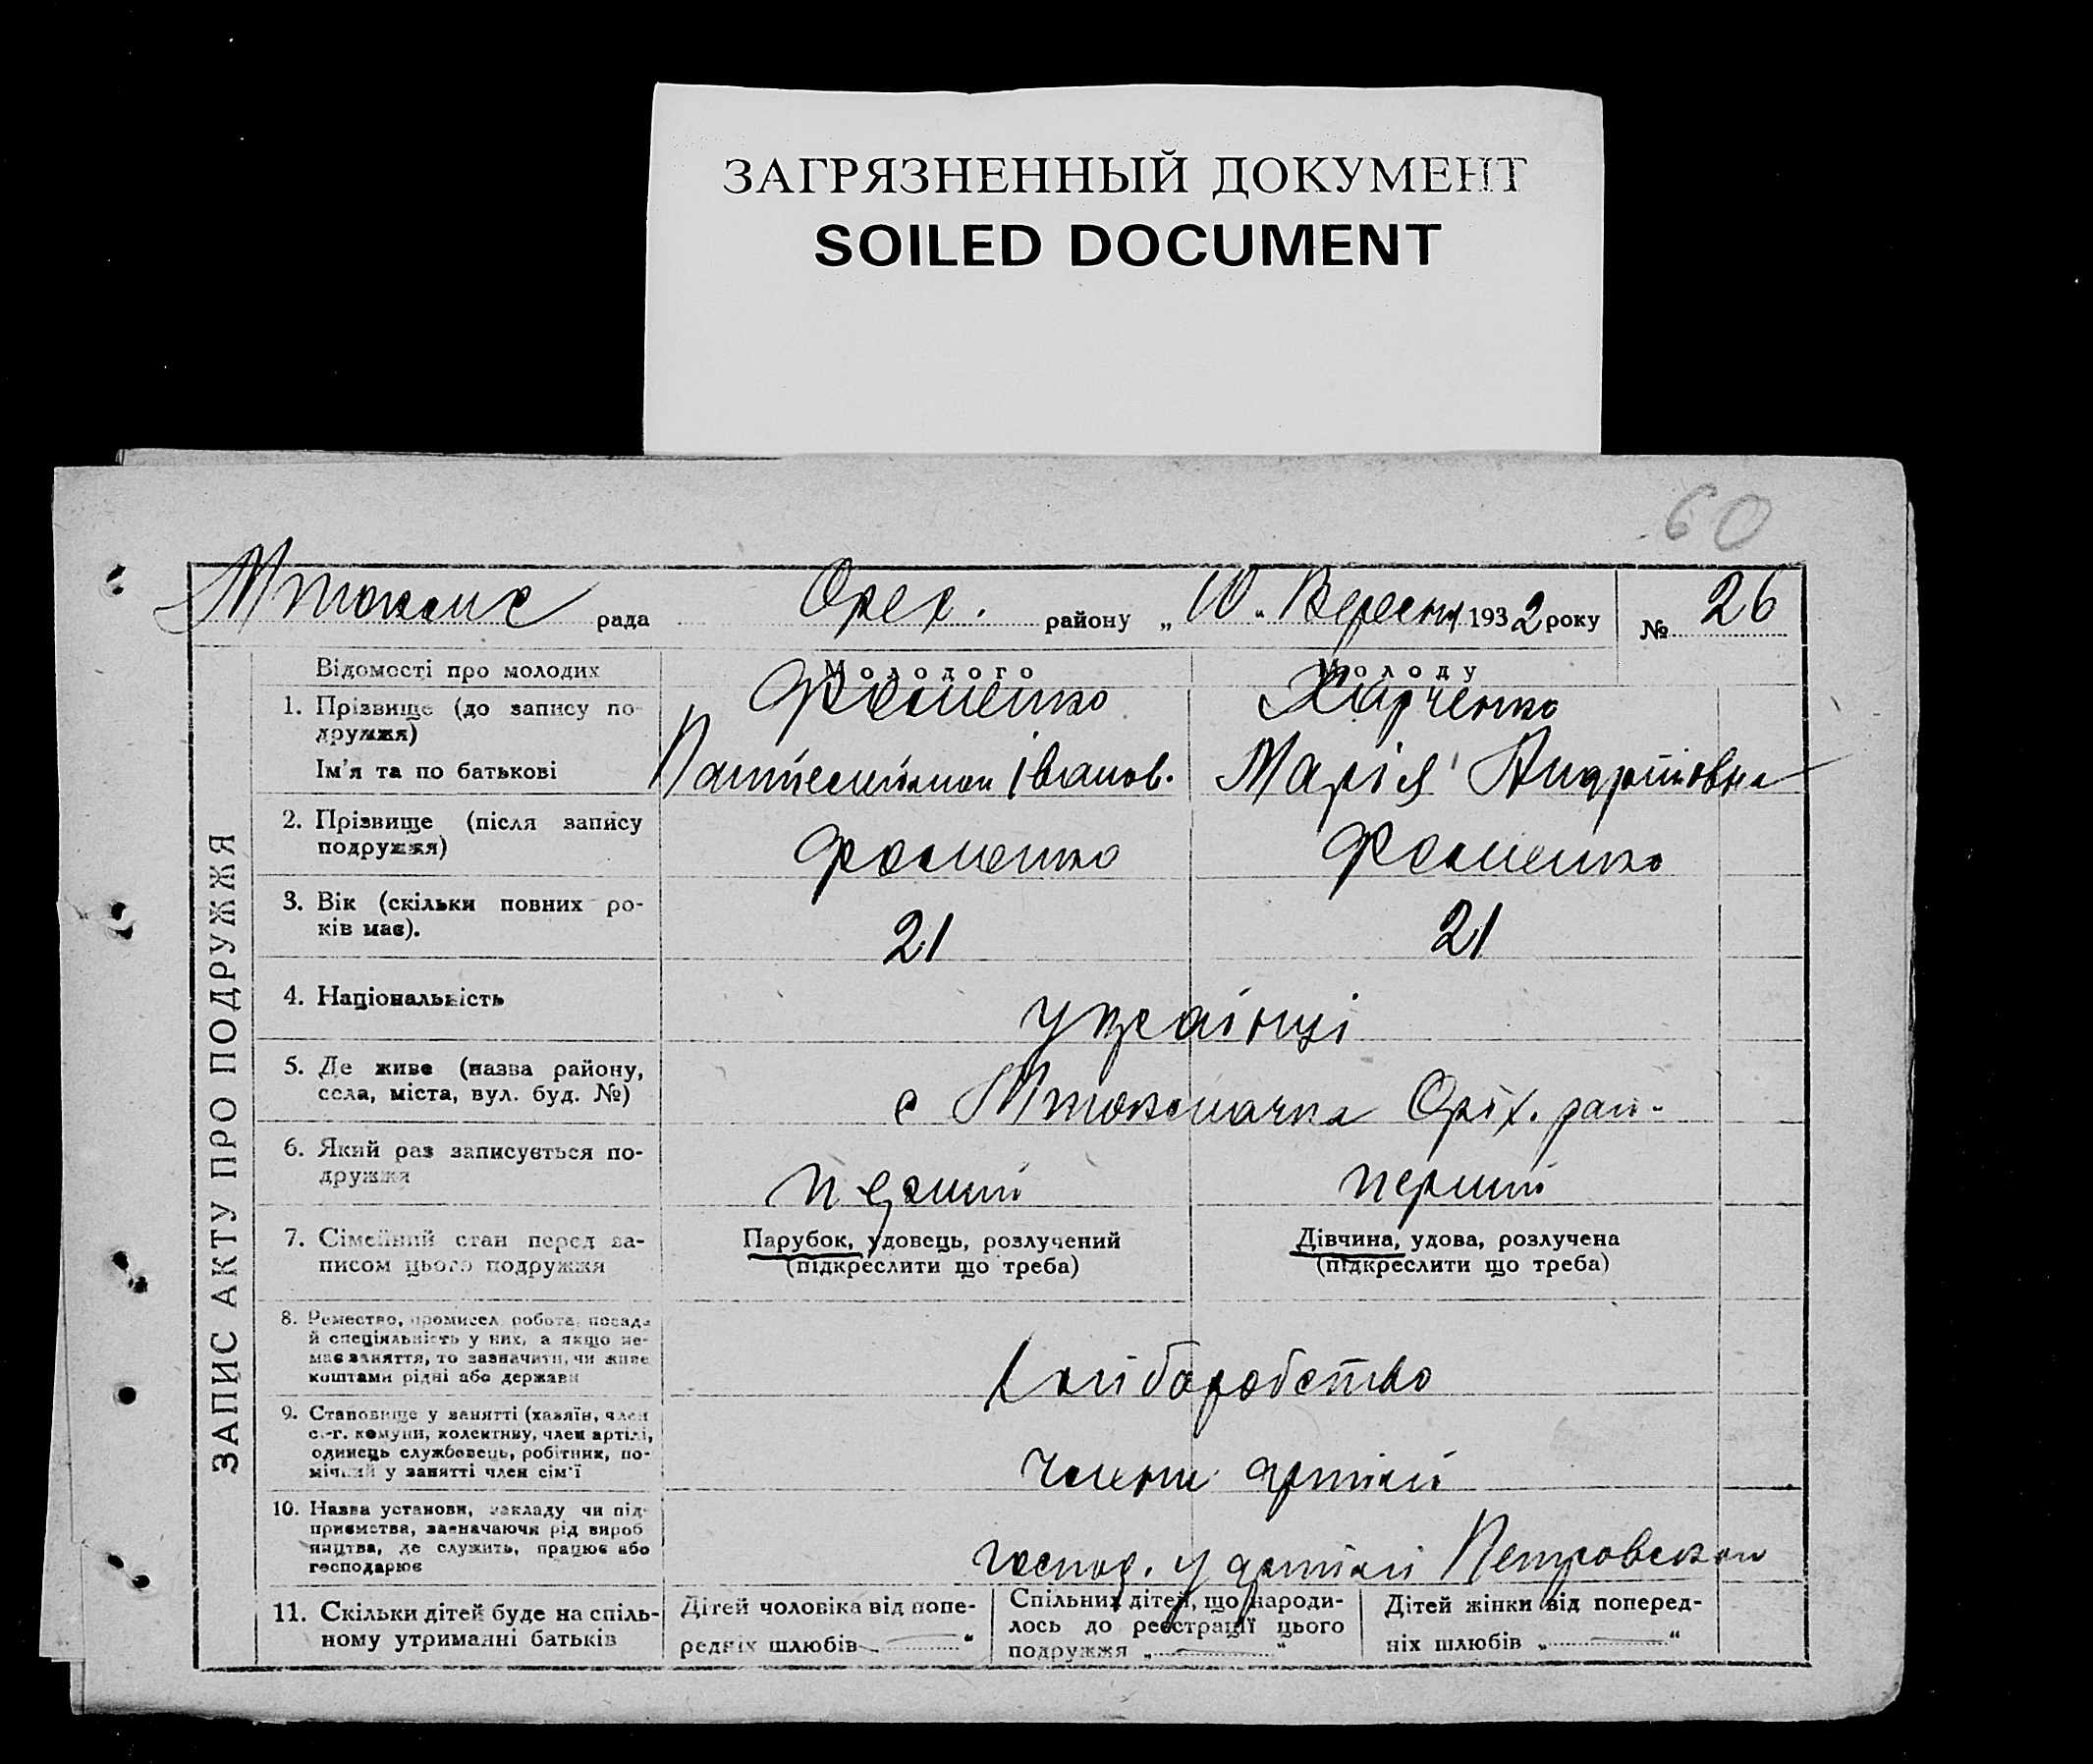 ЗАГРЯЗНЕННЫЙ ДОКУМЕНТ
SOILED DOCUMENT
60
рада Орех. району „10" Вересня 1932 року № 26
ЗАПИС АКТУ ПРО ПОДРУЖЖЯ
Відомості про молодих Молодого Молоду
1. Прізвище (до запису по- Фоменко Харченко
дружжя)
Ім'я та по батькові Пантелиймон Іванов. Марія Андріївна
2. Прізвище (після запису Фоменко Фоменко
подружжя)
3. Вік (скільки повних ро- 21 21
ків має).
4. Національність українці
5. Де живе (назва району, с Мтокмачка Оріх. рай.
села, міста, вул. буд. №)
6. Який раз записується по- перший перший
дружжя
7. Сімейний стан перед за- Парубок, удовець, розлучений Дівчина, удова, розлучена
писом цього подружжя (підкреслити що треба) (підкреслити що треба)
8. Ремество, промисел, робота, посада
й спеціяльність у них, а якщо не-
має заняття, то зазначити, чи живе
коштами рідні або держави Хліборобство
9. Становище у занятті (хазяїн, член
с.-г. комуни, колективу, член артілі,
одинець службовець, робітник, по-
мічний у занятті член сім'ї члени артілі
10. Назва установи, закладу чи під-
приємства, зазначаючи рід вироб
ництва, де служить, працює або
господарює господ. у артілі Петровского
11. Скільки дітей буде на спіль- Дітей чоловіка від попе- Спільних дітей, що народи- Дітей жінки від поперед-
ному утриманні батьків редніх шлюбів „ — " лось до реєстрації цього ніх шлюбів „ — "
подружжя „ — "